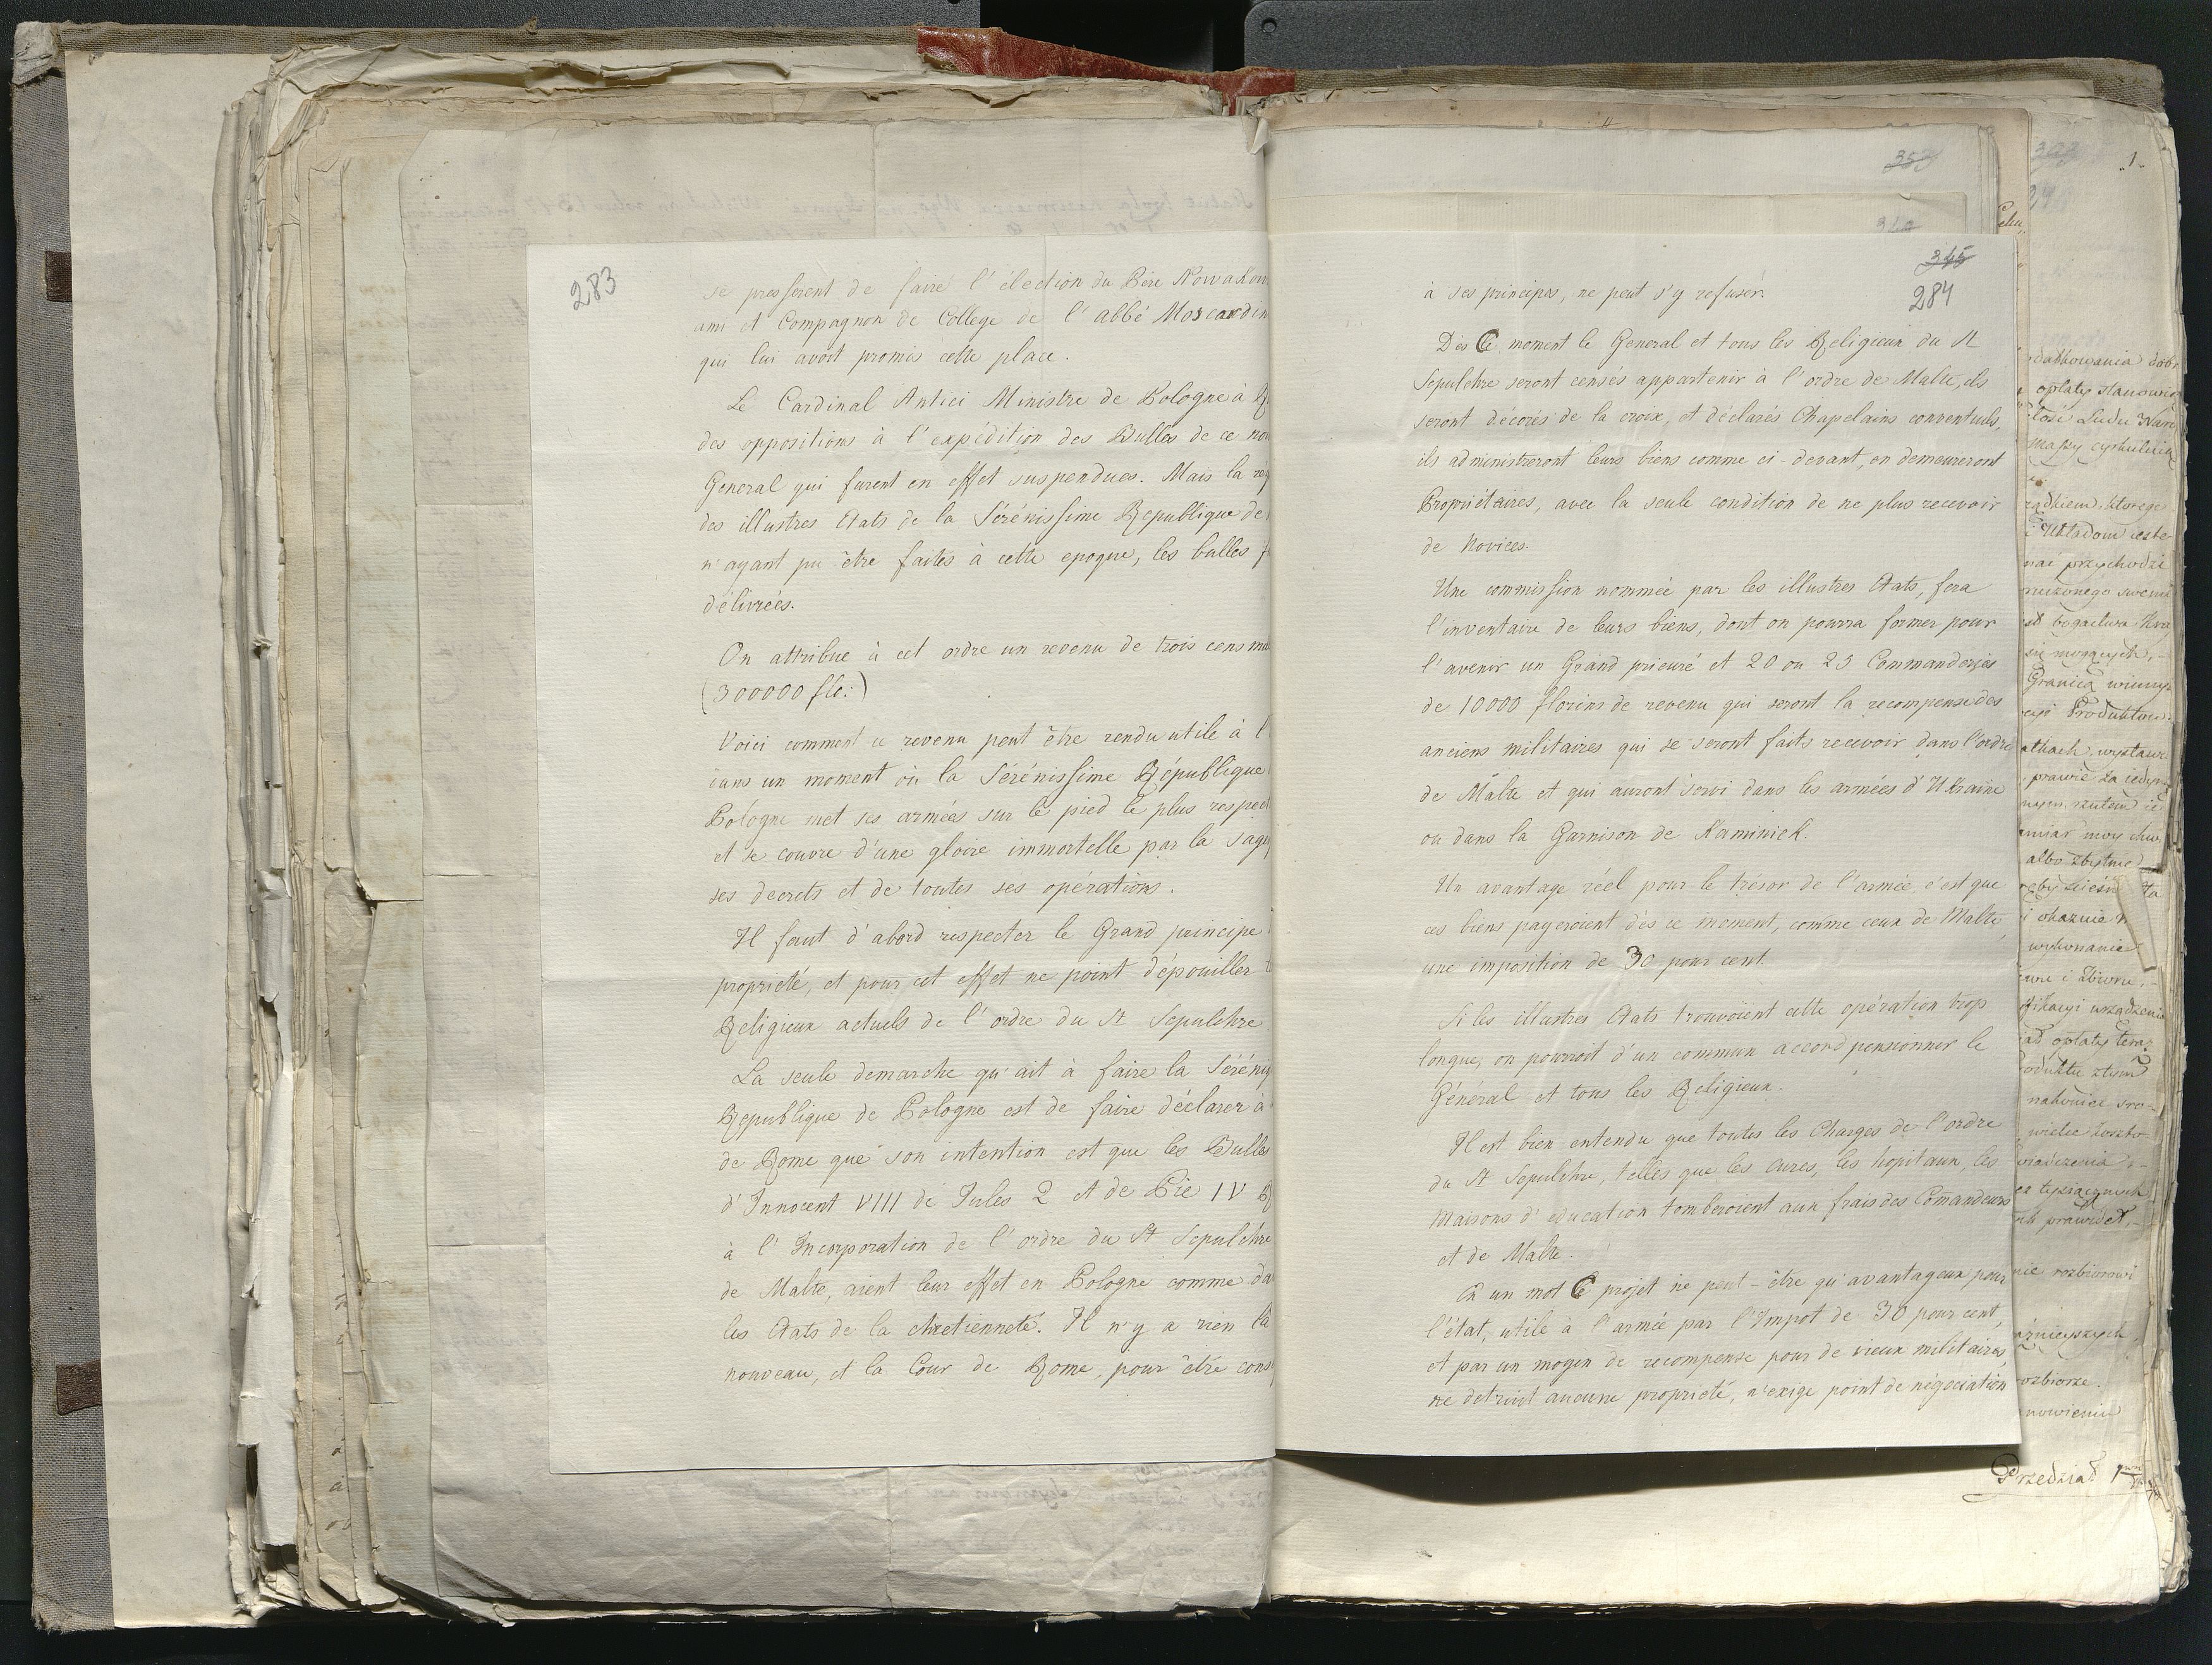 283
se presserent de faire l'élection du Père Nowakow
ami et Compagnon de College de l'abbé Moscardin
qui lui avoit promis cette place.
Le Cardinal Antici Ministre de Pologne à R
des oppositions à l'expédition des Bulles de ce no
General qui furent en effet suspendues. Mais la req
des illustres Etats de la Sérénissime Republique de
n'ayant pu être faites à cette epoque, les bulles f
délivrées.
On attribue à cet ordre un revenu de trois cens mi
(300000 flo:)
Voici comment ce revenu peut être rendu utile à l'
dans un moment où la Sérénissime République
Pologne met ses armées sur le pied le plus respec
et se couvre d'une gloire immortelle par la sage
ses decrets et de toutes ses opérations.
Il faut d'abord respecter le Grand principe
proprieté, et pour cet effet ne point dépouiller
Religieux actuels de l'ordre du St Sepulchre
La seule demarche qu'ait à faire la Séréni
Republique de Pologne est de faire déclarer à
de Rome que son intention est que les Bulles
d'Innocent VIII de Jules 2 et de Pie IV R
à l'Incorporation de l'ordre du St Sepulchre
de Malte, aient leur effet en Pologne comme da
les Etats de la chretienneté. Il n'y a rien là
nouveau, et la Cour de Rome, pour être cons
359
340
345
284
à ses principes, ne peut s'y refuser.
Dès Ce moment le General et tous les Religieux du St
Sepulchre seront censés appartenir à l'ordre de Malte, ils
seront décorés de la croix, et déclarés Chapelains conventuels,
ils administreront leurs biens comme ci-devant, en demeureront
Propriétaires, avec la seule condition de ne plus recevoir
de Novices.
Une commission nommée par les illustres Etats, fera
l'inventaire de leurs biens, dont on pourra former pour
l'avenir un Grand prieuré et 20 ou 25 Commanderies
de 10000 florins de revenu qui seront la recompense des
anciens militaires qui se seront faits recevoir dans l'ordre
de Malte et qui auront servi dans les armées d'Ukraine
ou dans la Garnison de Kaminiek.
Un avantage réel pour le trésor de l'armée, c'est que
ces biens payeroient dès ce moment, comme ceux de Malte,
une imposition de 30 pour cent
Si les illustres Etats trouvoient cette opération trop
longue, on pourroit d'un commun accord pensionner le
Général et tous les Religieux.
Il est bien entendu que toutes les Charges de l'ordre
du St Sepulchre, telles que les cures, les hopitaux, les
maisons d'education tomberoient aux frais des Comandeurs
et de Malte.
En un mot Ce projet ne peut-être qu'avantageux pour
l'état, utile à l'armée par l'Impot de 30 pour cent,
et par un moyen de recompense pour de vieux militaires,
ne detruit aucune proprieté, n'exige point de négociation
1.
opłaty stanowio
Ludu
przychodzi
bogactwa Kra
Granicą
Produktow
prawie za iedyn
albo zbytnie
wykonanie
opłaty teraz
wiele koszto
prawideł,
ozbiorze.
nowieniu
Przedział 1